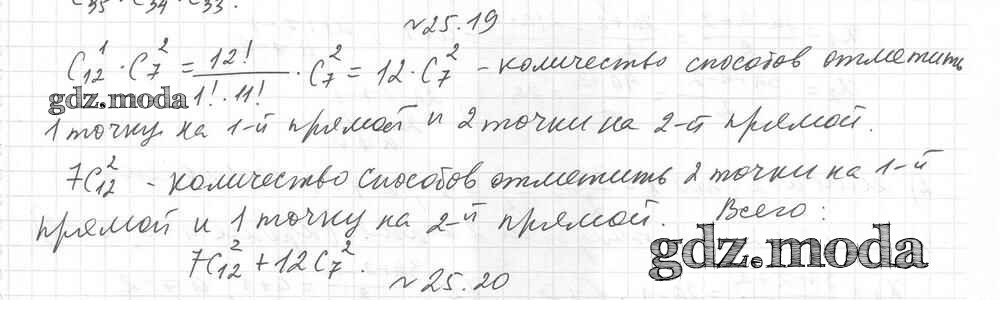 C₃₅ · C₃₄ · C₃₃.
№25.19
C¹₁₂ · C²₇ = 12!/(1! · 11!) · C²₇ = 12 · C²₇ – количество способов отметить
gdz.moda
1 точку на 1-й прямой и 2 точки на 2-й прямой.
7C²₁₂ - количество способов отметить 2 точки на 1-й
прямой и 1 точку на 2-й прямой. Всего:
7C²₁₂ + 12C²₇.
gdz.moda
№25.20